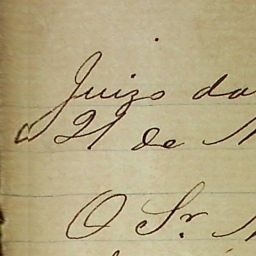 Juizo da
21 de
O Sr.